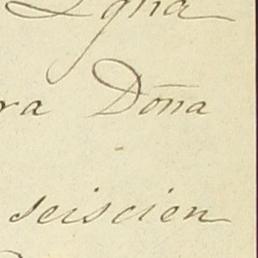 ra Doña
seiscien